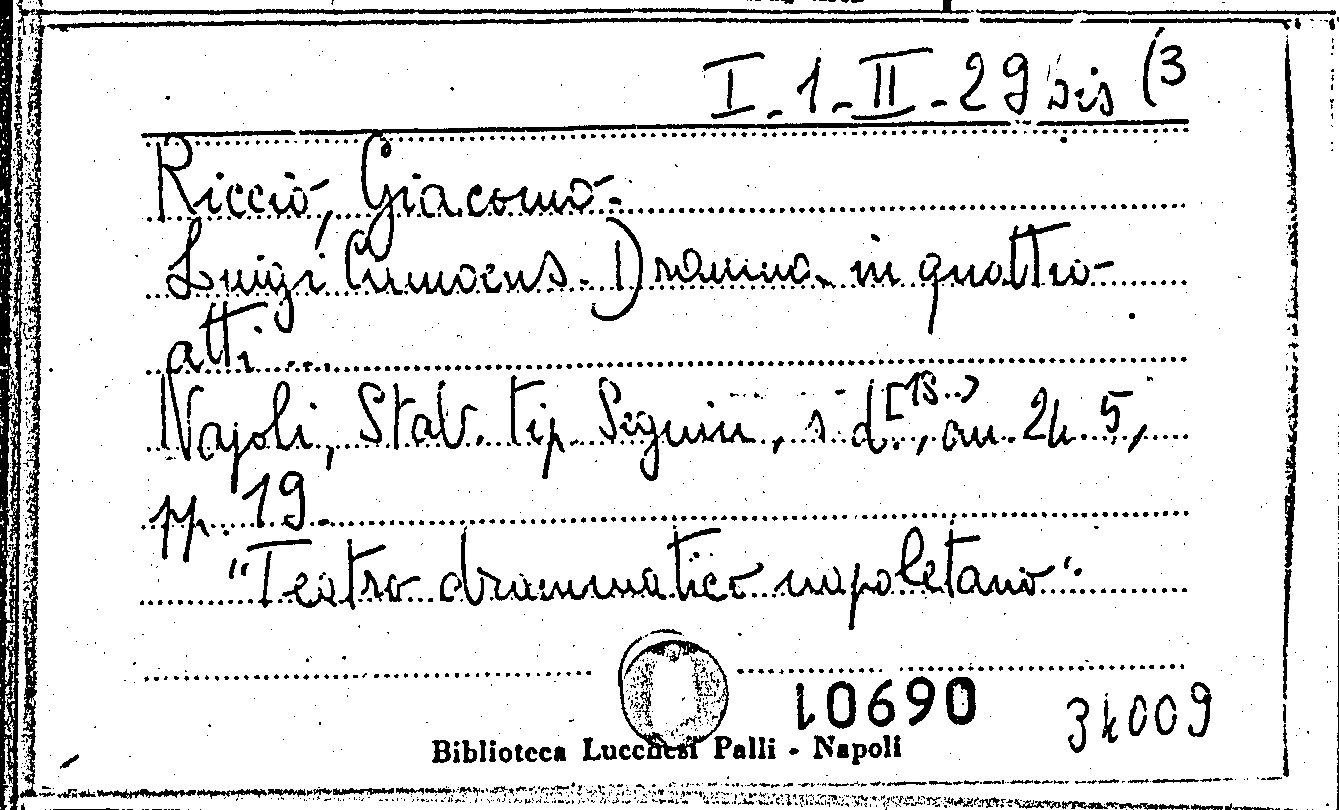 I. 1. II. 29 bis (3
Riccio, Giacomo.
Luigi Camoens. Dramma in quattro
atti ...
Napoli, Stab. tip. Seguin, s. d. [18..], 24 5,
pp. 19.
"Teatro drammatico napoletano".
10690 34009
Biblioteca Lucchesi Palli - Napoli